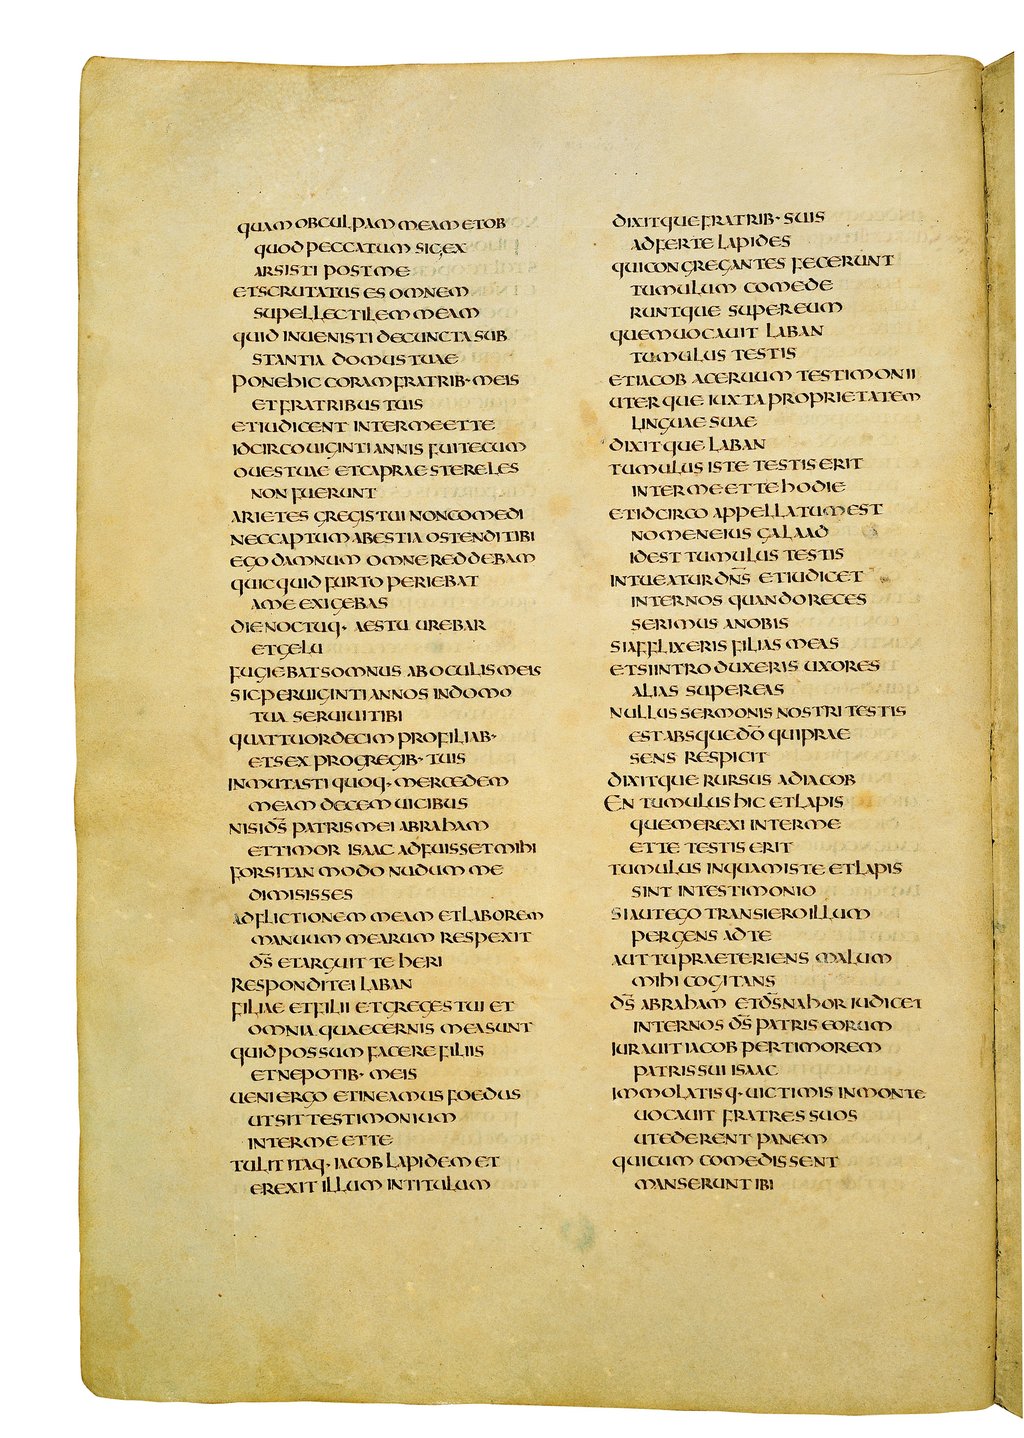 quam ob culpam meam et ob
quod peccatum sic ex
arsisti post me
et scrutatus es omnem
supellectilem meam
quid inuenisti de cuncta sub
stantia domus tuae
pone hic coram fratrib· meis
et fratribus tuis
et iudicent inter me et te
idcirco uiginti annis fui tecum
oues tuae et caprae stereles
non fuerunt
arietes gregis tui non comedi
nec captum a bestia ostendi tibi
ego damnum omne reddebam
quicquid furto periebat
a me exigebas
die noctuq· aestu urebar
et gelu
fugiebat somnus ab oculis meis
sic per uiginti annos in domo
tua seruiui tibi
quattuordecim pro filiab·
et sex pro gregib· tuis
inmutasti quoq· mercedem
meam decem uicibus
nisi d̅s̅ patris mei abraham
et timor isaac adfuisset mihi
forsitan modo nudum me
dimisisses
adflictionem meam et laborem
manuum mearum respexit
d̅s̅ et arguit te heri
respondit ei laban
filiae et filii et greges tui et
omnia quae cernis mea sunt
quid possum facere filiis
et nepotib· meis
ueni ergo et ineamus foedus
ut sit testimonium
inter me et te
tulit itaq· iacob lapidem et
erexit illum in titulum
dixitque fratrib· suis
adferte lapides
qui congregantes fecerunt
tumulum comede
runtque super eum
quem uocauit laban
tumulus testis
et iacob aceruum testimonii
uterque iuxta proprietatem
linguae suae
dixitque laban
tumulus iste testis erit
inter me et te hodie
et idcirco appellatum est
nomen eius galaad
id est tumulus testis
intueatur d̅n̅s̅ et iudicet
inter nos quando reces
serimus a nobis
si afflixeris filias meas
et si introduxeris uxores
alias super eas
nullus sermonis nostri testis
est absque d̅o̅ qui prae
sens respicit
dixitque rursus ad iacob
En tumulus hic et lapis
quem erexi inter me
et te testis erit
tumulus inquam iste et lapis
sint in testimonio
si aut ego transiero illum
pergens ad te
aut tu praeteriens malum
mihi cogitans
d̅s̅ abraham et d̅s̅ nahor iudicet
inter nos d̅s̅ patris eorum
iurauit iacob per timorem
patris sui isaac
immolatisq· uictimis in monte
uocauit fratres suos
ut ederent panem
qui cum comedissent
manserunt ibi